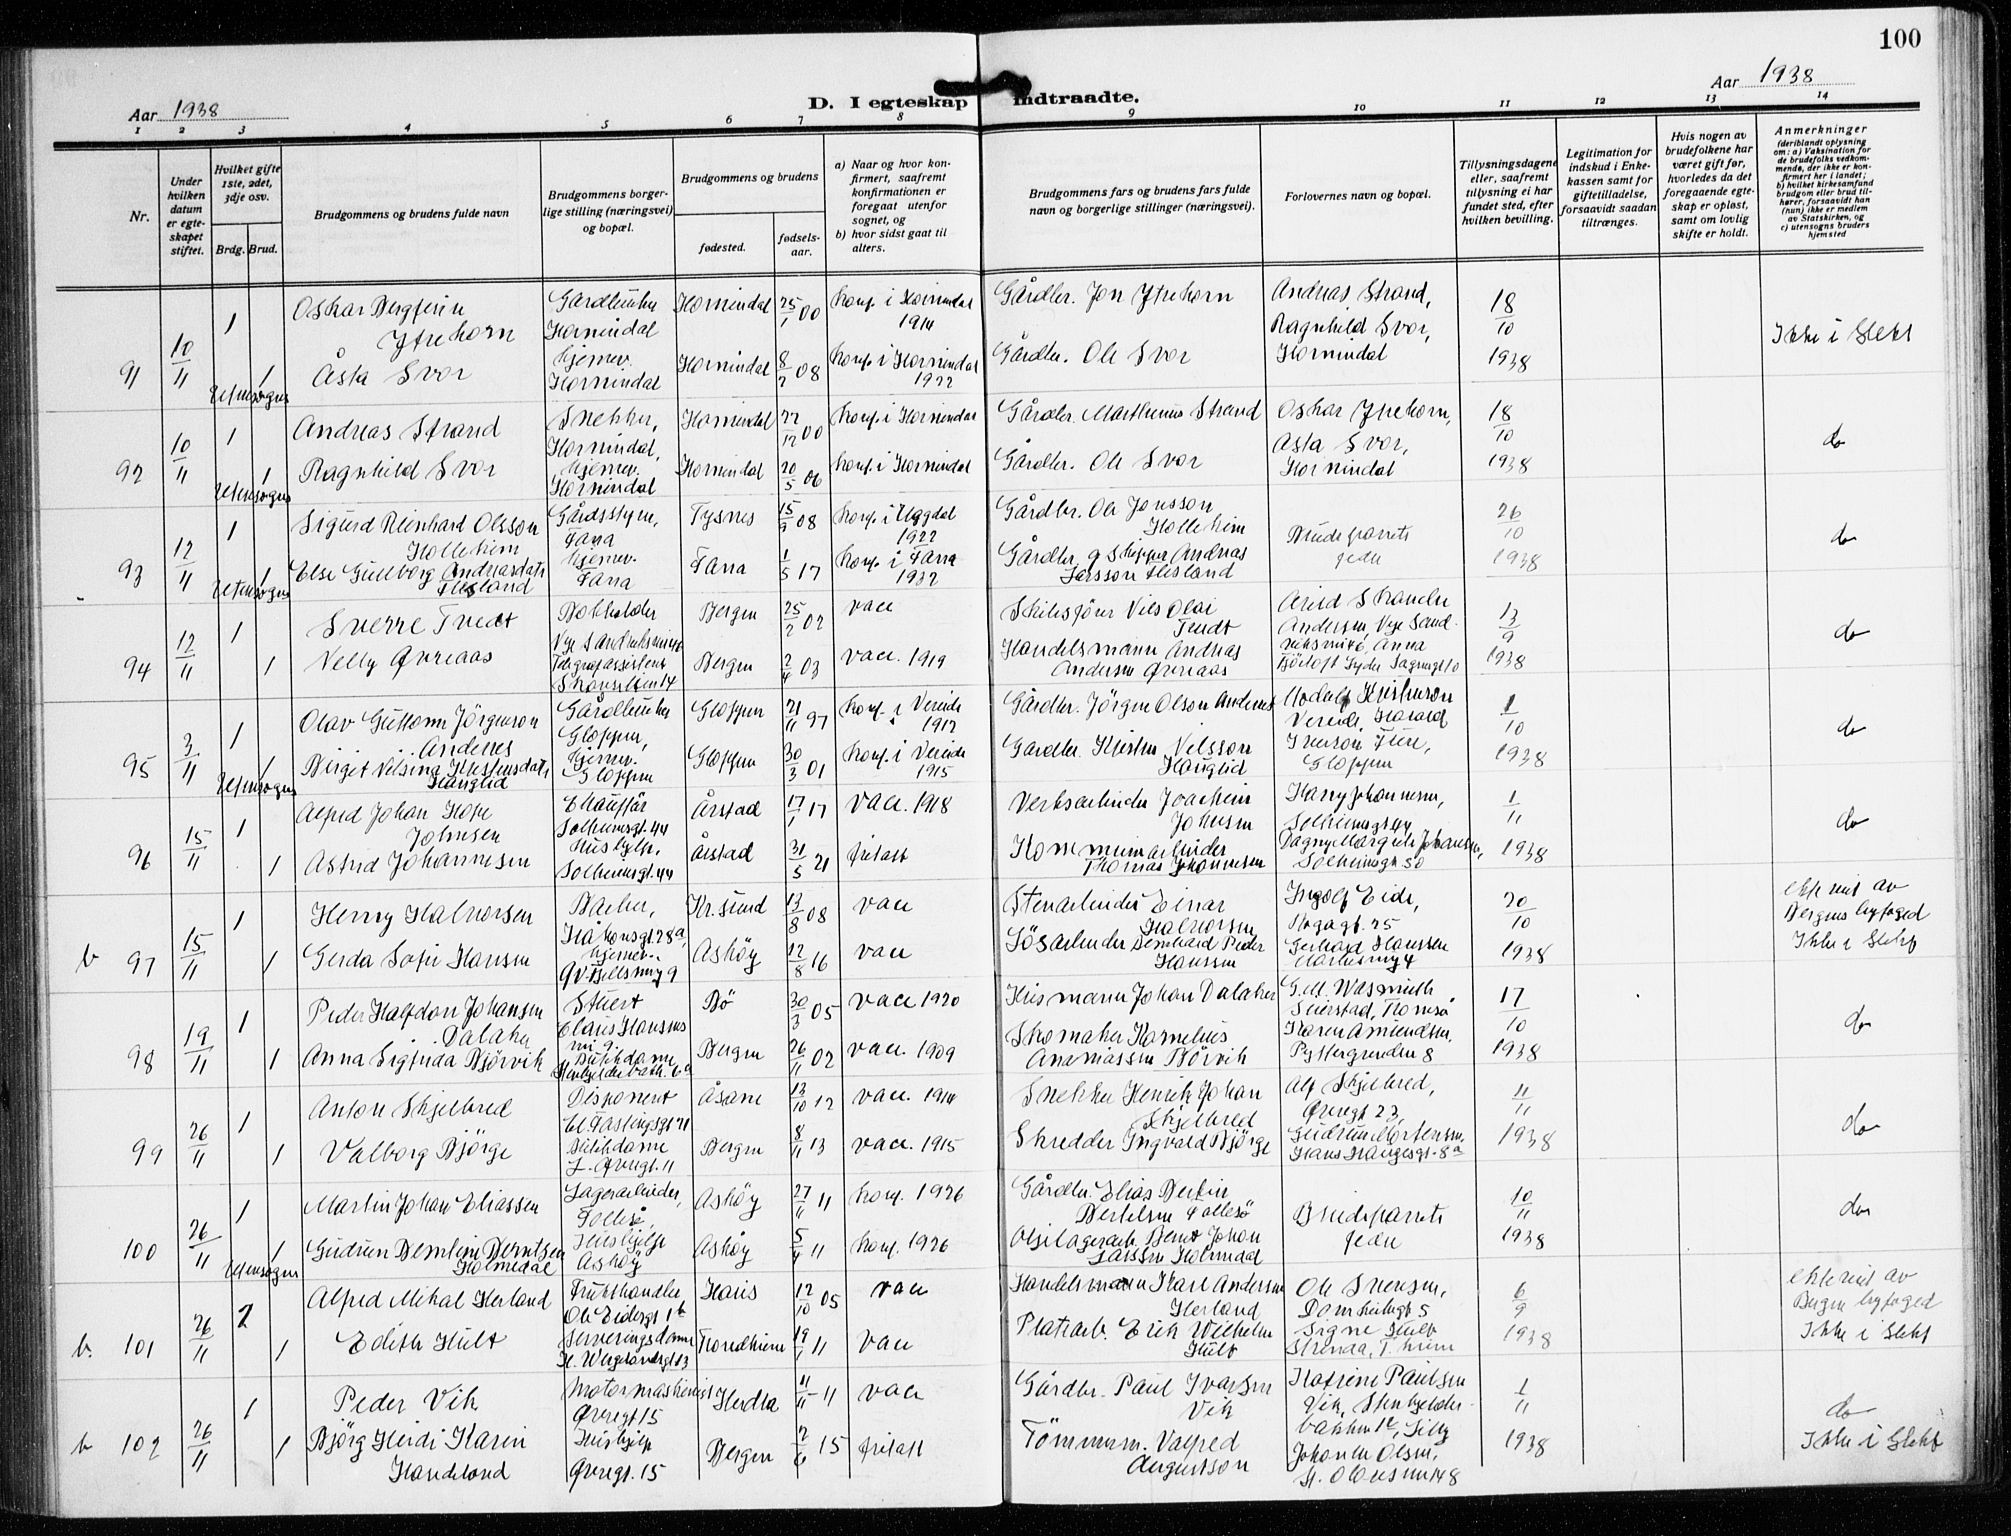 100
Aar 1938
D. I egteskap indtraadte.
Aar 1938
1 2 3 4 5 6 7 8 9 10 11 12 13 14
Nr.
Under hvilken datum er egteskapet stiftet.
Hvilket gifte 1ste, 2det, 3dje osv.
Brdg. Brud.
Brudgommens og brudens fulde navn
Brudgommens borgerlige stilling (næringsvei) og bopæl.
Brudgommens og brudens
fødested.
fødselsaar.
a) Naar og hvor konfirmert, saafremt konfirmationen er foregaat utenfor sognet, og
b) hvor sidst gaat til alters.
Brudgommens fars og brudens fars fulde navn og borgerlige stillinger (næringsvei).
Forlovernes navn og bopæl.
Tillysningsdagene eller, saafremt tillysning ei har fundet sted, efter hvilken bevilling.
Legitimation for indskud i Enkekassen samt for giftetilladelse, forsaavidt saadan tiltrænges.
Hvis nogen av brudefolkene har været gift før, hvorledes da det foregaaende egteskap er opløst, samt om lovlig skifte er holdt.
Anmerkninger
(deriblandt oplysning om: a) Vaksination for de brudefolks vedkommende, der ikke er konfirmert her i landet; b) hvilket kirkesamfund brudgom eller brud tilhører, forsaavidt han (hun) ikke er medlem av Statskirken, og c) utensogns bruders hjemsted
91 10/11 1 Oskar Bergfinn Ytrehorn Gårdbruker Hornindal Hornindal 25/1 00 konf. i Hornindal 1914 Gårdbr. Jon Ytrehorn Andreas Strand, 18/10 1938 Ikke i slekt
1 utensogns Åsta Svor hjemmev. Hornindal Hornindal 8/2 08 konf. i Hornindal 1922 Gårdbr. Ole Svor Ragnhild Svor, Hornindal
92 10/11 1 Andreas Strand Snekker, Hornindal, Hornindal 22/12 00 konf. i Hornindal Gårdbr. Marthinus Strand Oskar Ytrehorn, 18/10 1938 do
1 utensogns Ragnhild Svor hjemmev. Hornindal Hornindal 20/5 06 konf. i Hornindal Gårdbr. Ole Svor Asta Svor, Hornindal
93 12/11 1 Sigurd Reinhard Olsson Holleheim Gårdsstyrer, Fana Tysnes 15/9 08 konf. i Uggdal 1922 Gårdbr. Ole Jonsson Holleheim Brudeparrets fedre 26/10 1938 do
1 utensogns Else Gullborg Andreasdatr Flesland hjemmev. Fana Fana 1/5 17 konf. i Fana 1932 Gårdbr. og skipper Andreas Larsson Flesland
94 12/11 1 Sverre Tvedt Bokholder Bergen 25/2 02 vacc Skibsfører Nils Olai Tvedt 13/9 1938 do
1 Nelly Øvreaas Telegrafassistent Bergen 2/4 03 vacc. 1919 Handelsmann Andreas Andersen Øvreaas
95 3/11 1 Olav Guttorm Jörgenson Andenes Gårdbruker Gloppen, Gloppen 21/11 97 konf. i Vereide 1912 Gårdbr. Jörgen Olson Andenes 1/10 1938 do
1 utensogns Birget Nilsina Kristensdatr Hauglid hjemmev. Gloppen Gloppen 30/3 01 konf. i Vereide 1915 Gårdbr. Kristen Nilsson Hauglid Gloppen
96 15/11 1 Alfred Johan Hope Johnsen Chauffør Solheimsgt. 44 Årstad 17/1 17 vacc. 1918 Verksarbeider Joachim Johnsen Harry Johannesen, Solheimsgt 44 1/11 1938 do
1 Astrid Johannesen Hushjelp, Solheimsgt. 44 Årstad 31/5 21 fritatt Kommunearbeider Thomas Johannesen Dagny Margrethe Johansen, Solheimsgt 50
b 97 15/11 1 Henry Halvorsen Baker, Håkonsgt. 28a, Kr.sund 13/8 08 vacc Stenarbeider Einar Halvorsen Ingolf Eide, 20/10 1938 ekteviet av Bergens byfoged Ikke i slekt
1 Gerda Sofie Hansen hjemmev. Askøy 12/8 16 vacc Løsarbeider Bernhard Peder Hanssen Gerhard Hanssen
98 19/11 1 Peder Halfdan Johansen Dalaker Stuert Bø 30/3 05 vacc 1920 Husmann Johan Dalaker 17/10 1938 do
1 Anna Sigfrida Bjørvik Butikdame Bergen 26/11 02 vacc. 1909 Skomaker Kornelius Ananiassen Bjørvik Karen Amundsen, Pyttergrenden 8
99 26/11 1 Anton Skjelbred Disponent C. Fastingsgt 21 Åsane 13/10 12 vacc. 1914 Snekker Henrik Johan Skjelbred Alf Skjelbred, Øvregt 23, 11/11 1938 do
1 Valborg Bjørge Butikdame L. Øvregt. 11 Bergen 8/11 13 vacc. 1915 Skredder Ingvald Bjørge Gudrun Mortensen, Hans Haugesgt. 8a
100 26/11 1 Martin Johan Eliassen Lagerarbeider, Follesø, Askøy 27/11 11 konf. 1926 Gårdbr. Elias Bertin Bertelsen Follesø Brudeparrets fedre 10/11 1938 do
1 utensogns Gudrun Bernline Berntsen Holmedal Hushjelp Askøy Askøy 5/4 11 konf. 1926 Oljelagerarb. Bernt Johan Larssen Holmedal
b. 101 26/11 2 Alfred Mikal Herland Frukthandler Ole Eidesgt 1b Haus 12/10 05 vacc Handelsmann Karl Andersen Herland Ole Svensen, Domkirkegt 5 6/9 1938 ekteviet av Bergen byfoged Ikke i slekt
1 Edith Hult Serveringsdame H. Wergelandsgt 13 Trondheim 19/1 11 vacc Platearb. Erik Wilhelm Hult Signe Hult Strinda, T.heim
b 102 26/11 1 Peder Vik Motormaskinist Øvregt 15 Herdla 11/11 11 vacc Gårdbr. Paul Ivarsen Vik Katrine Paulsen Vik, 1/11 1938 do Ikke i slekt
1 Bjørg Heidi Karin Handeland Hushjelp Øvregt. 15 Bergen 2/6 15 fritatt Tömmerm. Valfred Augustson Johanne Olsen,